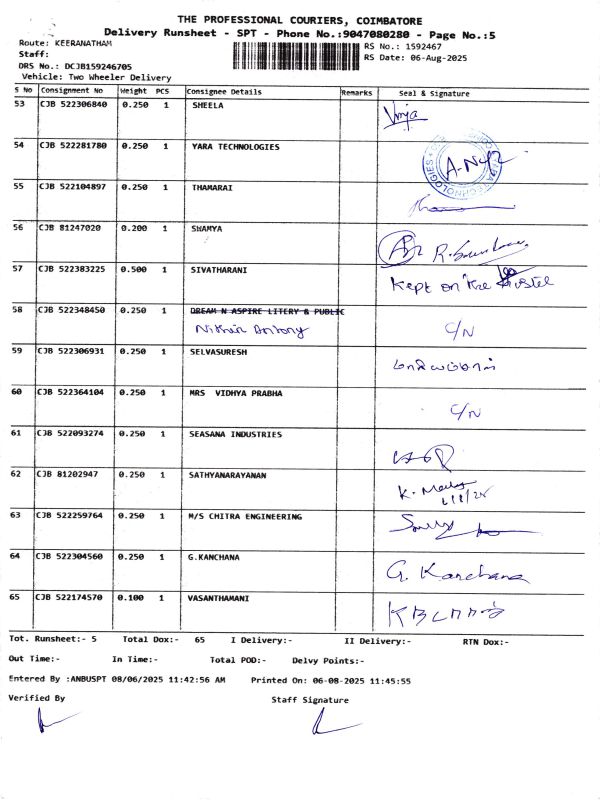 THE PROFESSIONAL COURIERS, COIMBATORE
Delivery Runsheet - SPT - Phone No.:9047080280 - Page No.:5
Route: KEERANATHAM
RS No.: 1592467
Staff:
RS Date: 06-Aug-2025
DRS No.: DCJB159246705
Vehicle: Two Wheeler Delivery
S No Consignment No Weight PCS Consignee Details Remarks Seal & Signature
53 CJB 522306840 0.250 1 SHEELA
54 CJB 522281780 0.250 1 YARA TECHNOLOGIES
55 CJB 522104897 0.250 1 THAMARAI
56 CJB 81247020 0.200 1 SHAMYA
57 CJB 522383225 0.500 1 SIVATHARANI Kept on the
58 CJB 522348450 0.250 1 DREAM N ASPIRE LITERY & PUBLIC
Nithin Antony C/N
59 CJB 522306931 0.250 1 SELVASURESH
60 CJB 522364104 0.250 1 MRS VIDHYA PRABHA C/N
61 CJB 522093274 0.250 1 SEASANA INDUSTRIES
62 CJB 81202947 0.250 1 SATHYANARAYANAN
63 CJB 522259764 0.250 1 M/S CHITRA ENGINEERING
64 CJB 522304560 0.250 1 G.KANCHANA G. Kanchana
65 CJB 522174570 0.100 1 VASANTHAMANI
Tot. Runsheet:- 5 Total Dox:- 65 I Delivery:- II Delivery:- RTN Dox:-
Out Time:- In Time:- Total POD:- Delvy Points:-
Entered By :ANBUSPT 08/06/2025 11:42:56 AM Printed On: 06-08-2025 11:45:55
Verified By Staff Signature